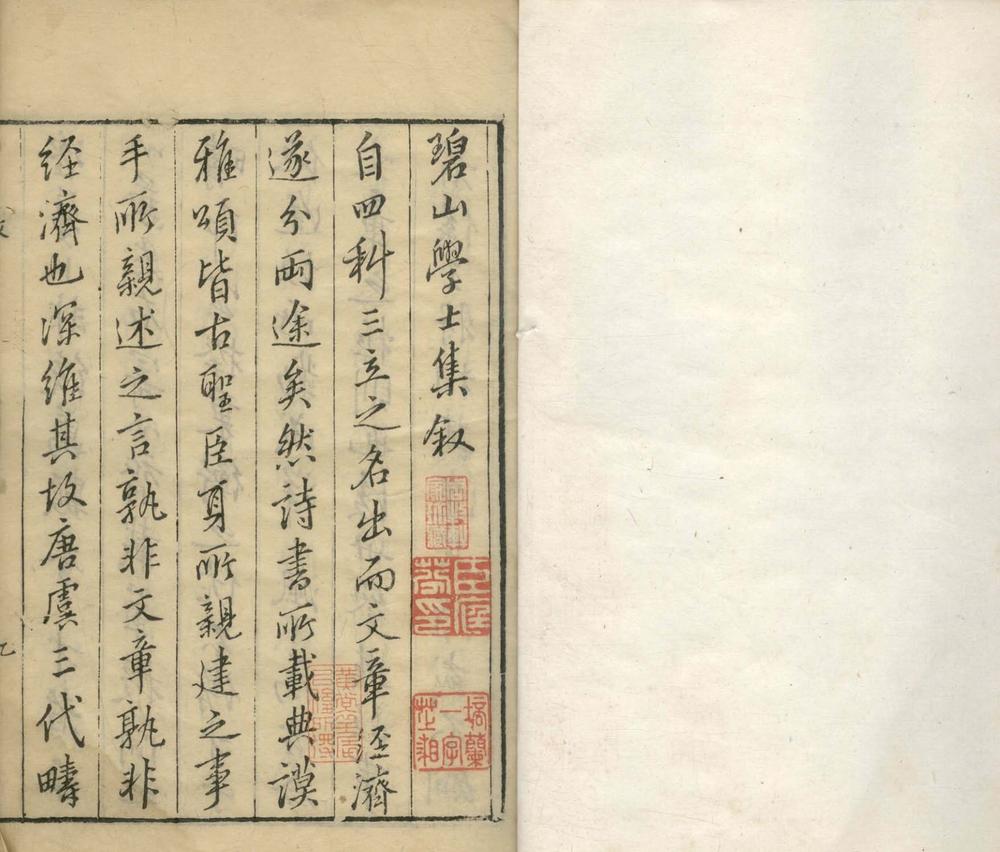 碧山學士集叙
自四科三立之名出而文章経濟
遂分兩途矣然詩書所載典謨
雅頌皆古聖臣身所親建之事
手所親述之言孰非文章孰非
経濟也深維其故唐虞三代疇